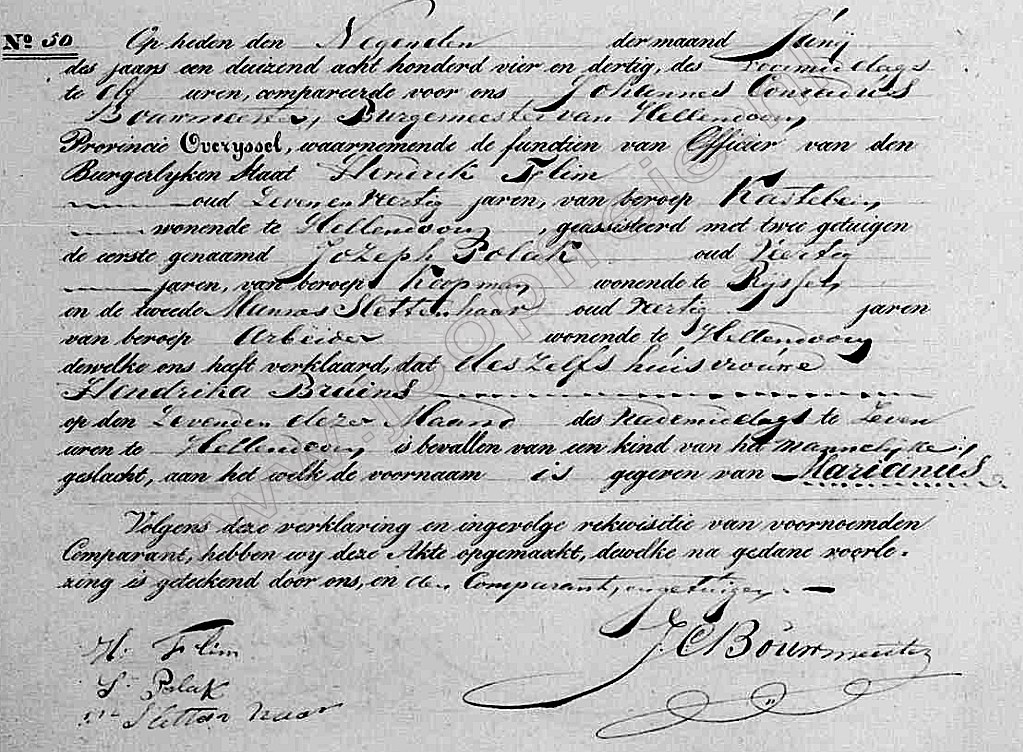 No 50 Op heden den Negenden der maand Junij
des jaars een duizend acht honderd vier en dertig, des voormiddags
te elf uren, compareerde voor ons Johannes Conradus
Bouwmeester, Burgemeester van Hellendoorn
Provincie Overyssel, waarnemende de functien van Officier van den
Burgerlyken Staat Hendrik Flim
oud Zeven en veertig jaren, van beroep Kastelein
wonende te Hellendoorn, geassisteerd met twee getuigen
de eerste genaamd Jozeph Polak oud Veertig
jaren, van beroep Koopman wonende te Rijssen
en de tweede Slettenhaar oud veertig jaren
van beroep Arbeider wonende te Hellendoorn
dewelke ons heeft verklaard, dat deszelfs huisvrouwe
Hendrika Bruins
op den Zevenden dezer Maand des nademiddags te Zeven
uren te Hellendoorn is bevallen van een kind van het mannelijke
geslacht, aan het welk de voornaam is gegeven van Marianus
Volgens deze verklaring en ingevolge rekwisitie van voornoemden
Comparant, hebben wy deze Akte opgemaakt, dewelke na gedane voorle-
zing is geteekend door ons, en den Comparant, en getuigen.
J. C. Bouwmeester
H. Flim
Polak
Slettenhaar